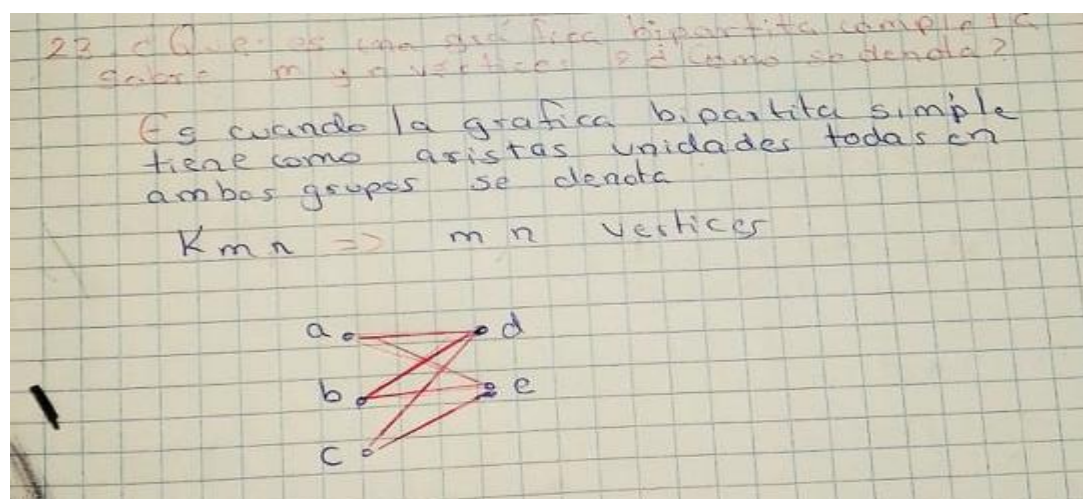 23 ¿Que es una grafica bipartita completa
sobre m y n vertices y ¿Como se denota?
Es cuando la grafica bipartita simple
tiene como aristas unidades todas en
ambos grupos se denota
Km n => m n vertices
a d
b e
c